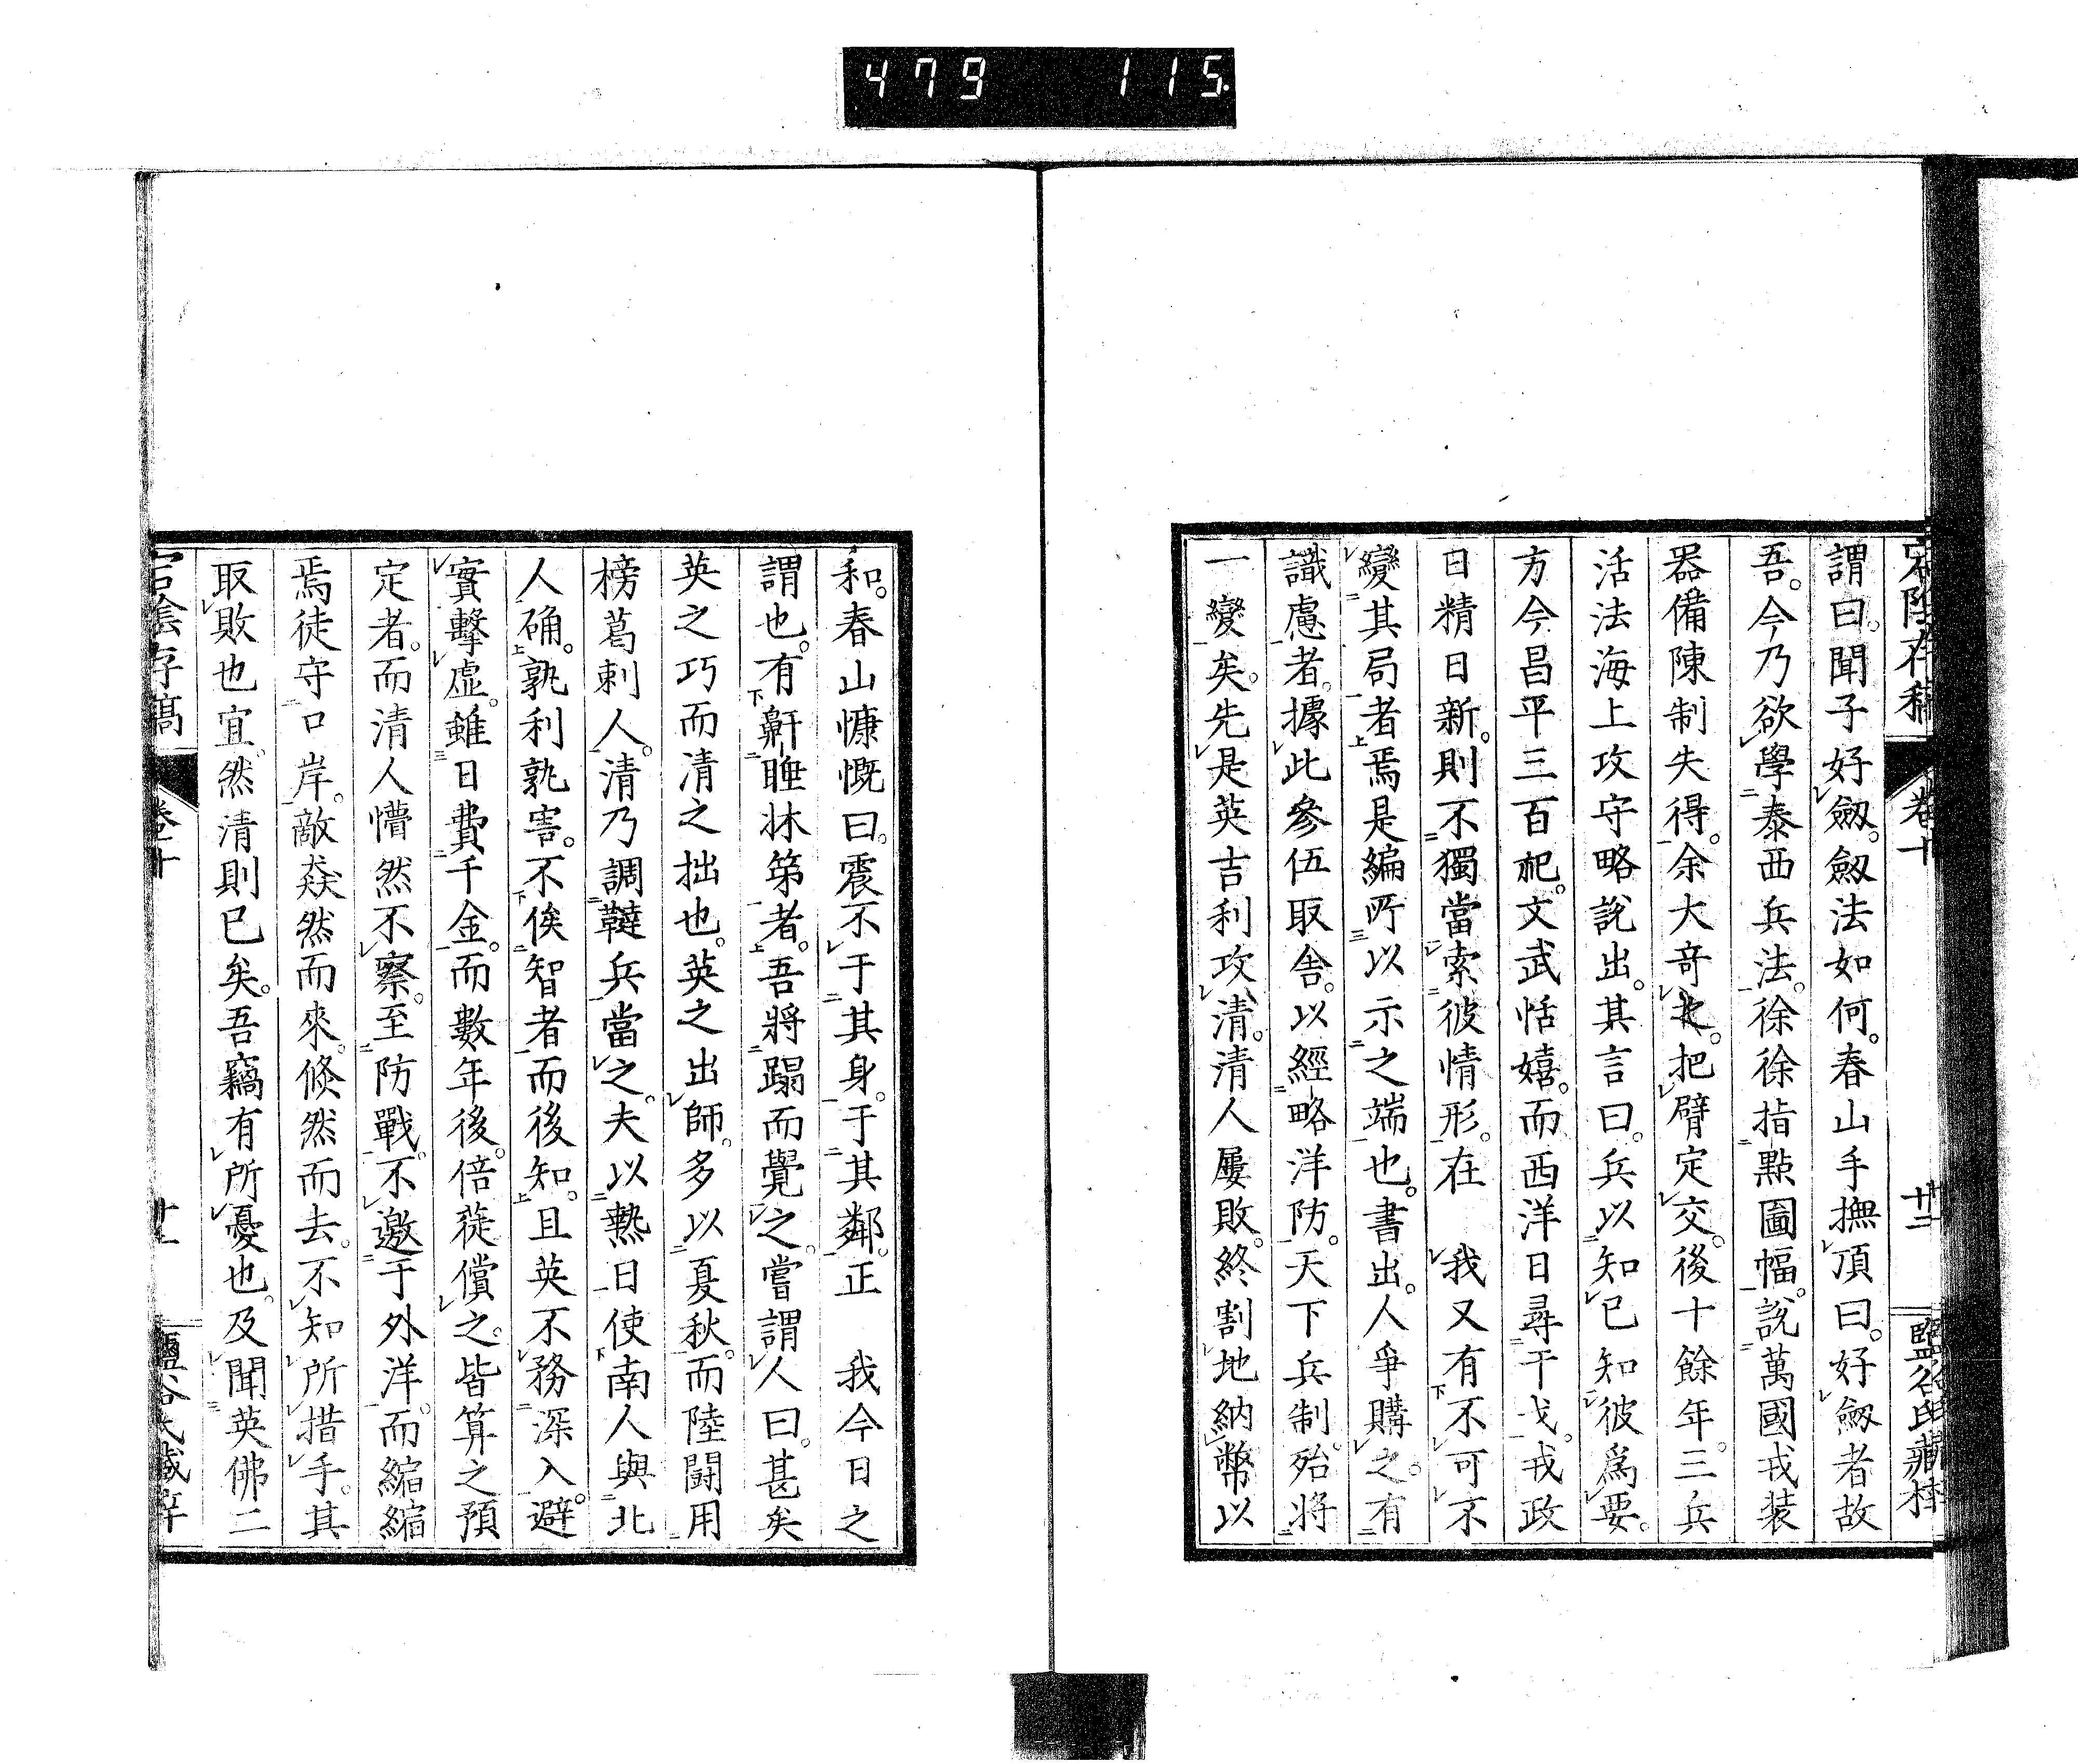 479 115
謂曰。聞子好劔。劔法如何。春山手撫頂曰。好劔者故
吾。今乃欲學泰西兵法。徐徐指點圖幅。說萬國戎装
器備陳制失得。余大竒之。把臂定交。後十餘年。三兵
活法海上攻守略說出。其言曰。兵以知已知彼爲要。
方今昌平三百祀。文武恬嬉。而西洋日尋干戈。戎政
日精日新。則不獨當索彼情形。在 我又有不可不
變其局者焉。是編所以示之端也。書出。人爭購之。有
識慮者。據此參伍取舍。以經略洋防。天下兵制。殆將
一變矣。先是英吉利攻清。清人屢敗。終割地納幣以
和。春山慷慨曰。震不于其身。于其鄰。正 我今日之
謂也。有鼾睡牀第者。吾將蹋而覺之。嘗謂人曰。甚矣
英之巧而清之拙也。英之出師。多以夏秋。而陸鬪用
榜葛剌人。清乃調韃兵當之。夫以熱日使南人與北
人确。孰利孰害。不俟智者而後知。且英不務深入。避
實擊虛。雖日費千金。而數年後。倍蓰償之。皆算之預
定者。而清人懵然不察。至防戰。不邀于外洋。而縮縮
焉徒守口岸。敵猋然而來。倏然而去。不知所措手。其
取敗也宜。然清則已矣。吾竊有所憂也。及聞英佛二
宕陰存稿 卷十